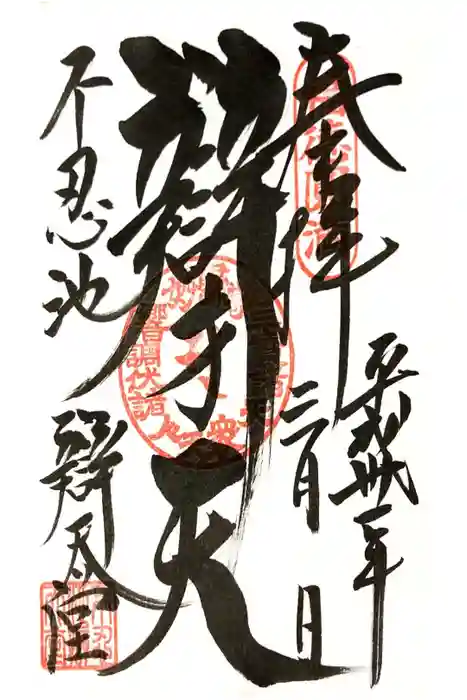 奉拝
平成卅一年
三月 日
辯才天
不忍池
辯天堂